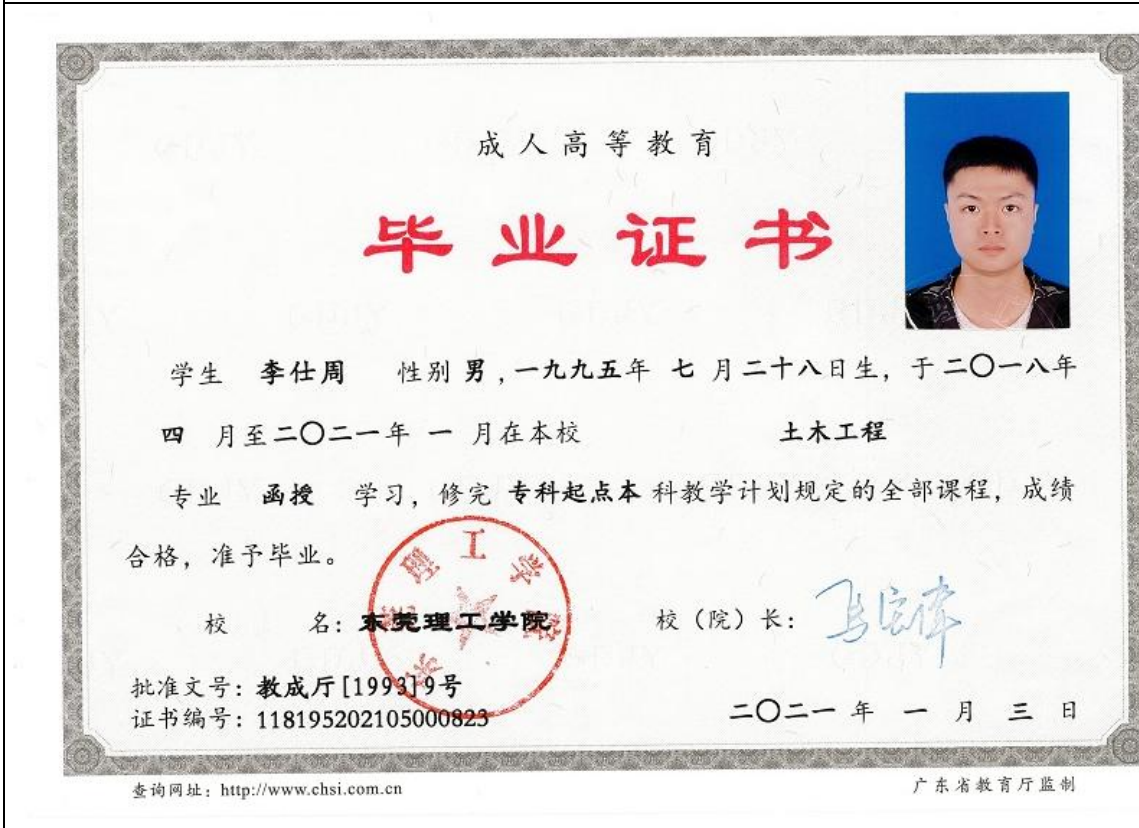 成人高等教育
毕业证书
学生 李仕周 性别 男，一九九五年 七 月二十八日生，于二〇一八年
四 月至二〇二一年 一 月在本校 土木工程
专业 函授 学习，修完 专科起点本 科教学计划规定的全部课程，成绩
合格，准予毕业。
校 名：东莞理工学院 校（院）长：
批准文号：教成厅[1993]9号
证书编号：118195202105000823 二〇二一 年 一 月 三 日
查询网址：http://www.chsi.com.cn 广东省教育厅监制